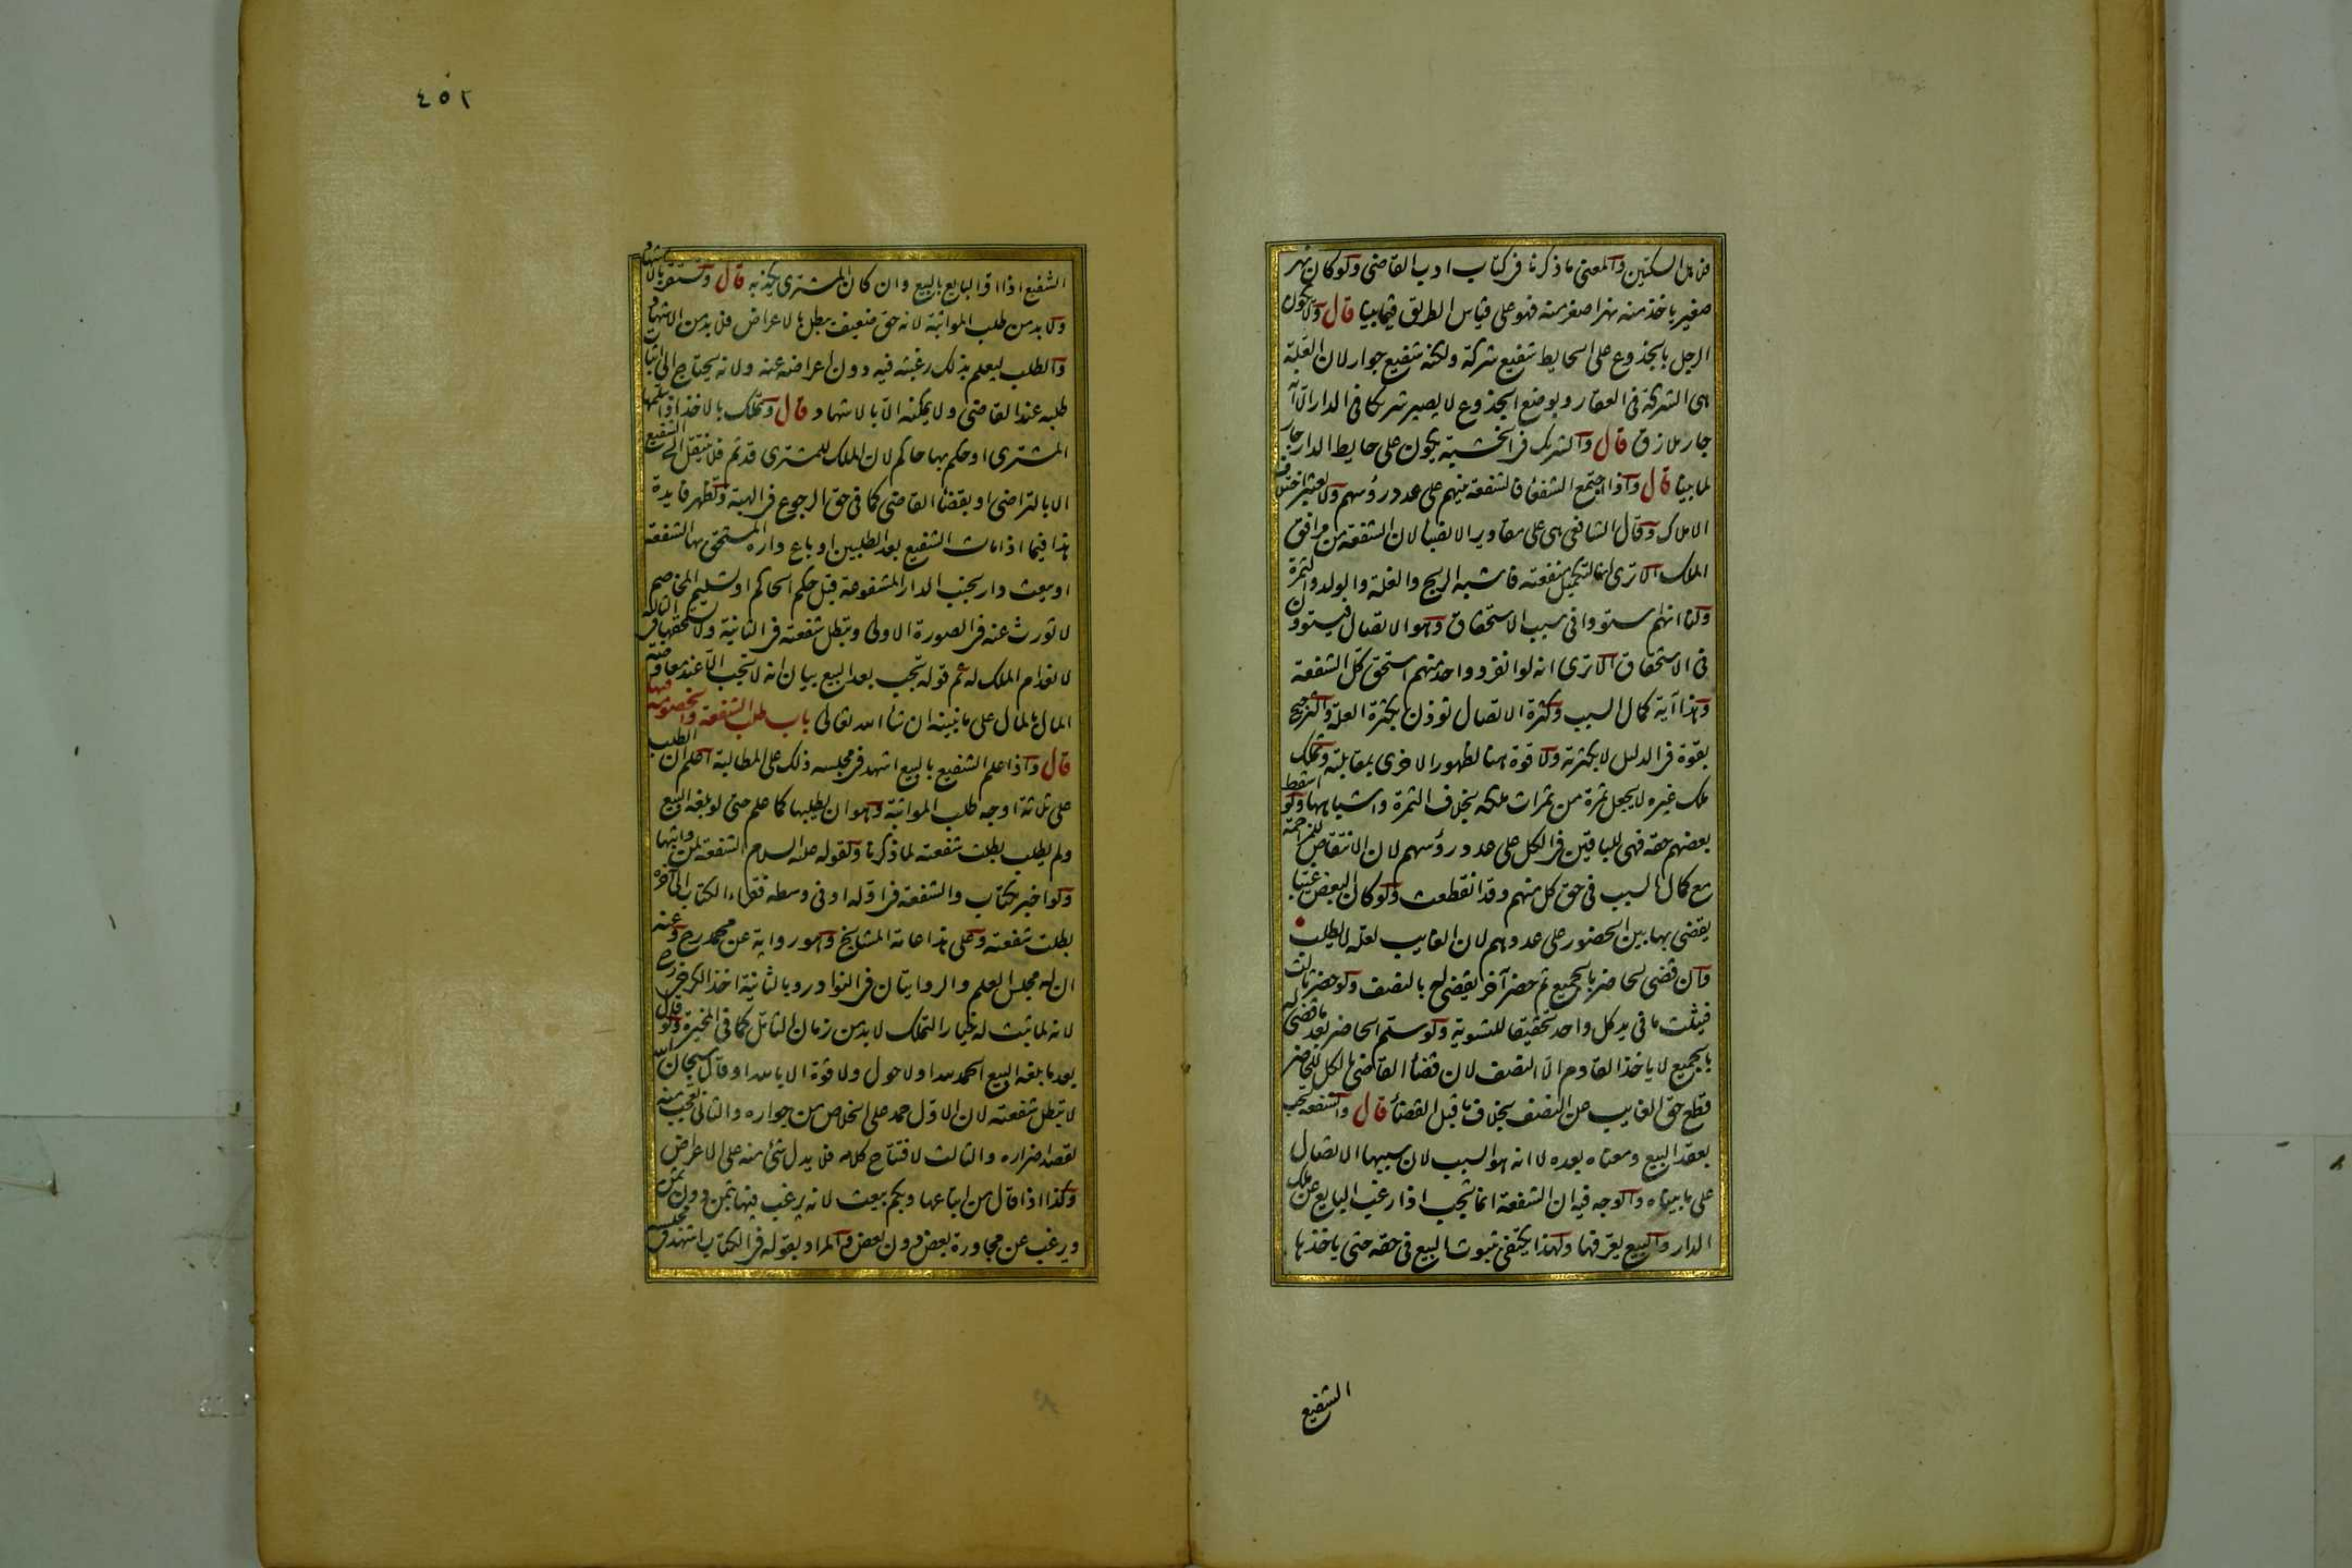 فلاهل السكتين والمعنى ما ذكرنا فى كتاب ادب القاضى ولو كان نهر
صغير ياخذ منه نهر اصغر منه فهو على قياس الطريق فيما بينا قال ولا يكون
الرجل بالجذوع على الحايط شفيع شركة ولكنه شفيع جوار لان العلة
هى الشركة فى العقار وبوضع الجذوع لا يصير شريكا فى الدار الا انه
جار ملازق قال والشريك فى الخشبة يكون على حايط الدار جار
لما بينا قال واذا اجتمع الشفعاء فالشفعة بينهم على عدد رؤسهم ولا يعتبر اختلاف
الاملاك وقال الشافعى هى على مقادير الانصباء لان الشفعة من مرافق
الملك الا ترى انها لتكميل منفعته فاشبه الربح والغلة والولد والثمرة
ولنا انهم استووا فى سبب الاستحقاق وهو الاتصال فيستوون
فى الاستحقاق الا ترى انه لو انفرد واحد منهم استحق كل الشفعة
وهذا آية كمال السبب وكثرة الاتصال توذن بكثرة العلة والترجيح
بقوة فى الدليل لا بكثرته ولا قوة هنا لظهور الاخرى بمقابلته وتملك
ملك غيره لا يجعل ثمرة من ثمرات ملكه بخلاف الثمرة واشباهها ولو اسقط
بعضهم حقه فهى للباقين فى الكل على عدد رؤسهم لان الانتقاص للمزاحمة
مع كمال السبب فى حق كل منهم وقد انقطعت ولو كان البعض غيبا
يقضى بها بين الحضور على عددهم لان الغايب لعله لا يطلب
وان قضى لحاضر بالجميع ثم حضر آخر يقضى له بالنصف ولو حضر ثالث
فبثلث ما فى يد كل واحد تحقيقا للتسوية ولو سلم الحاضر بعد ما قضى له
بالجميع لا ياخذ القادم الا النصف لان قضاء القاضى بالكل للحاضر
قطع حق الغايب عن النصف بخلاف ما قبل القضاء قال والشفعة تجب
بعقد البيع ومعناه بعده لا انه هو السبب لان سببها الاتصال
على ما بيناه والوجه فيه ان الشفعة انما تجب اذا رغب البايع عن ملك
الدار والبيع يعرفها ولهذا يكتفى بثبوت البيع فى حقه حتى ياخذها
الشفيع
٤٥٢
الشفيع اذا اقر البايع بالبيع وان كان المشترى يكذبه قال وتستقر بالاشهاد
ولا بد من طلب المواثبة لانه حق ضعيف يبطل بالاعراض فلا بد من الاشهاد
والطلب ليعلم بذلك رغبته فيه دون اعراضه عنه ولانه يحتاج الى اثبات
طلبه عند القاضى ولا يمكنه الا بالاشهاد قال وتملك بالاخذ اذا سلمها
المشترى او حكم بها حاكم لان الملك للمشترى قد تم فلا ينتقل الى الشفيع
الا بالتراضى او بقضاء القاضى كما فى حق الرجوع فى الهبة وتظهر فايدة
هذا فيما اذا مات الشفيع بعد الطلبين او باع داره المستحق بها الشفعة
او بيعت دار بجنب الدار المشفوعة قبل حكم الحاكم او تسليم المخاصم
لا تورث عنه فى الصورة الاولى وتبطل شفعته فى الثانية ولا يستحقها فى الثالثة
لانعدام الملك له ثم قوله تجب بعد البيع بيان انه لا تجب الا عند معاوضة
المال بالمال على ما نبينه ان شاء الله تعالى باب طلب الشفعة والخصومة فيها
قال واذا علم الشفيع بالبيع اشهد فى مجلسه ذلك على المطالبة اعلم ان الطلب
على ثلاثة اوجه طلب المواثبة وهو ان يطلبها كما علم حتى لو بلغه البيع
ولم يطلب بطلت شفعته لما ذكرنا ولقوله عليه السلام الشفعة لمن واثبها
ولو اخبر بكتاب والشفعة فى اوله او فى وسطه فقراء الكتاب الى آخره
بطلت شفعته وعلى هذا عامة المشايخ وهو رواية عن محمد رح وعنه
ان له مجلس العلم والروايتان فى النوادر وبالثانية اخذ الكرخى رح
لانه لما ثبت له خيار التملك لا بد من زمان التامل كما فى المخيرة ولو قال
بعد ما بلغه البيع الحمد لله او لا حول ولا قوة الا بالله او قال سبحان الله
لا تبطل شفعته لان الاول حمد على الخلاص من جواره والثانى تعجب منه
لقصد اضراره والثالث لافتتاح كلامه فلا يدل شئ منه على الاعراض
وكذا اذا قال من ابتاعها وبكم بيعت لانه يرغب فيها بثمن دون ثمن
ويرغب عن مجاورة بعض دون بعض والمراد بقوله فى الكتاب اشهد فى مجلسه